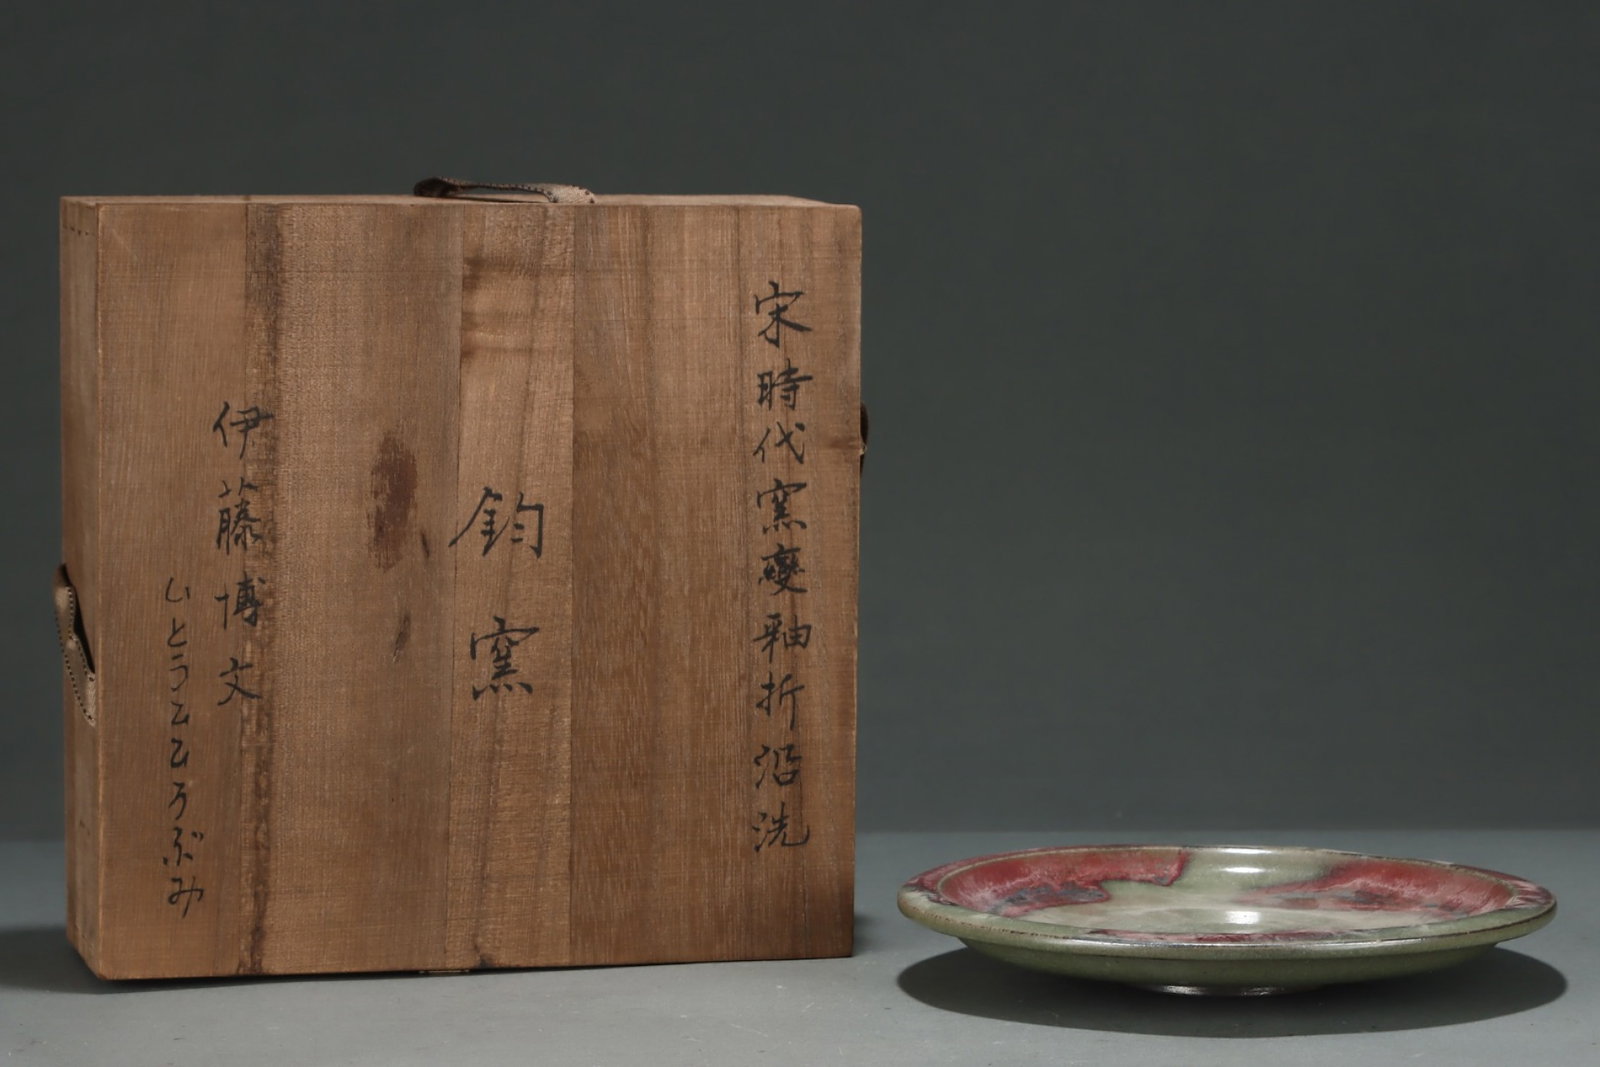 宋時代窯變釉折沿洗
鈞窯
伊藤博文
いとうひろぶみ